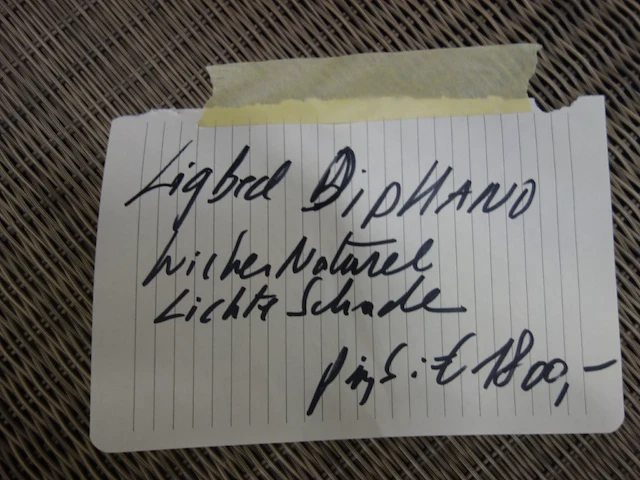 Ligbed DipHANO
wicker Naturel
Lichte Schade
prijs: € 1800,-